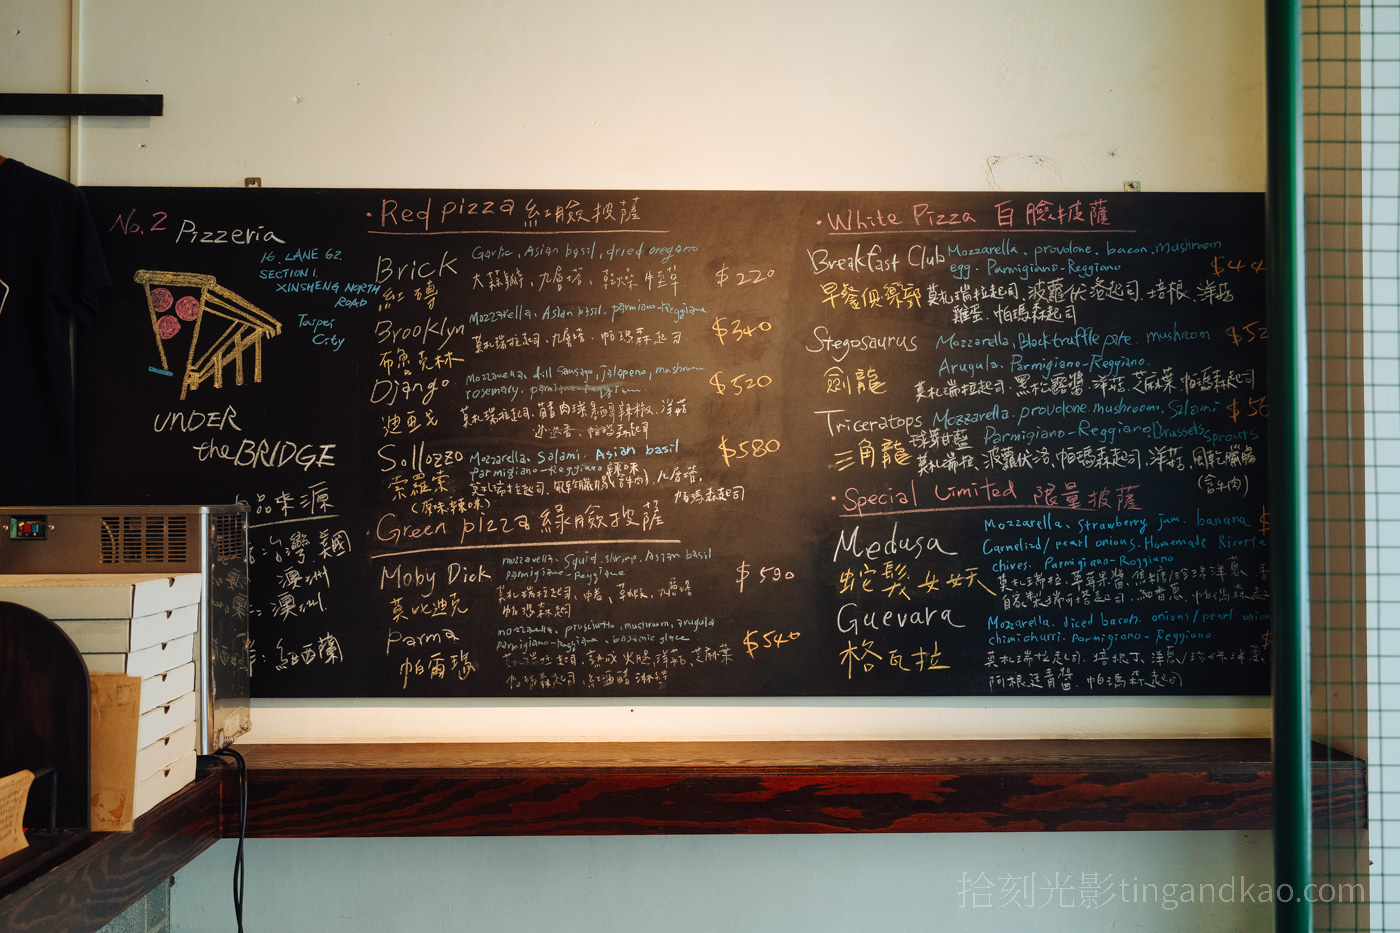 No. 2 Pizzeria
16. LANE 62,
SECTION 1,
XINSHENG NORTH
ROAD
Taipei
City
UNDER
the BRIDGE
品來源
台灣 美國
澳洲
澳洲
紐西蘭
· Red pizza 紅臉披薩
Brick
Garlic, Asian basil, dried oregano
$220
紅磚
大蒜, 九層塔, 乾燥牛至草
Brooklyn
Mozzarella. Asian basil. parmigiano-Reggiano
$340
布魯克林
莫札瑞拉起司. 九層塔. 帕瑪森起司.
Django
Mozzarella, dill sausage, jalapeno, mushroom
rosemary,
$520
迪更戈
莫札瑞拉起司. 辣椒. 洋菇
迷迭香. 帕瑪森起司
Sollozzo
Mozzarella, Salami. Asian basil
Parmigiano-Reggiano
$580
索羅索
莫札瑞拉起司. 風乾臘腸(含牛肉). 九層塔.
帕瑪森起司
(原味.辣味)
· Green pizza 綠臉披薩
Moby Dick
mozzarella. Squid. shrimp. Asian basil
parmigiano-Reggiano
$590
莫比迪克
莫札瑞拉起司. 中卷. 草蝦. 九層塔
帕瑪森起司
Parma
mozzarella, prosciutto, mushroom, arugula
parmigiano-Reggiano. balsamic glaze.
$540
帕爾瑪
莫札瑞拉起司. 熟成火腿. 洋菇. 芝麻葉
帕瑪森起司. 紅酒醋淋醬
· White Pizza 白臉披薩
Breakfast Club
Mozzarella. provolone. bacon. mushroom
egg. Parmigiano-Reggiano
早餐俱樂部
莫札瑞拉起司. 波蘿伏洛起司. 培根. 洋菇
雞蛋. 帕瑪森起司
Stegosaurus
Mozzarella. Black truffle pate. mushroom
Arugula. Parmigiano-Reggiano.
劍龍
莫札瑞拉起司. 黑松露醬. 洋菇. 芝麻葉 帕瑪森起司
Triceratops
Mozzarella. provolone. mushroom. Salami
Parmigiano-Reggiano. Brussels sprouts
三角龍
球芽甘藍
莫札瑞拉. 波蘿伏洛. 帕瑪森起司. 洋菇. 風乾臘腸
(含牛肉)
· Special Limited 限量披薩
Medusa
Mozzarella. Strawberry jam. banana
Carmelized/pearl onions. Homemade Ricotta
chives. Parmigiano-Reggiano
蛇髮女妖
莫札瑞拉. 草莓果醬. 焦糖/珍珠洋蔥.
自家製瑞可塔起司. 細香蔥. 帕瑪森起
Guevara
Mozzarella. diced bacon. onions/pearl onion
chimichurri. Parmigiano-Reggiano
格瓦拉
莫札瑞拉起司. 培根丁. 洋蔥/珍珠洋蔥.
阿根廷青醬. 帕瑪森起司
拾刻光影tingandkao.com